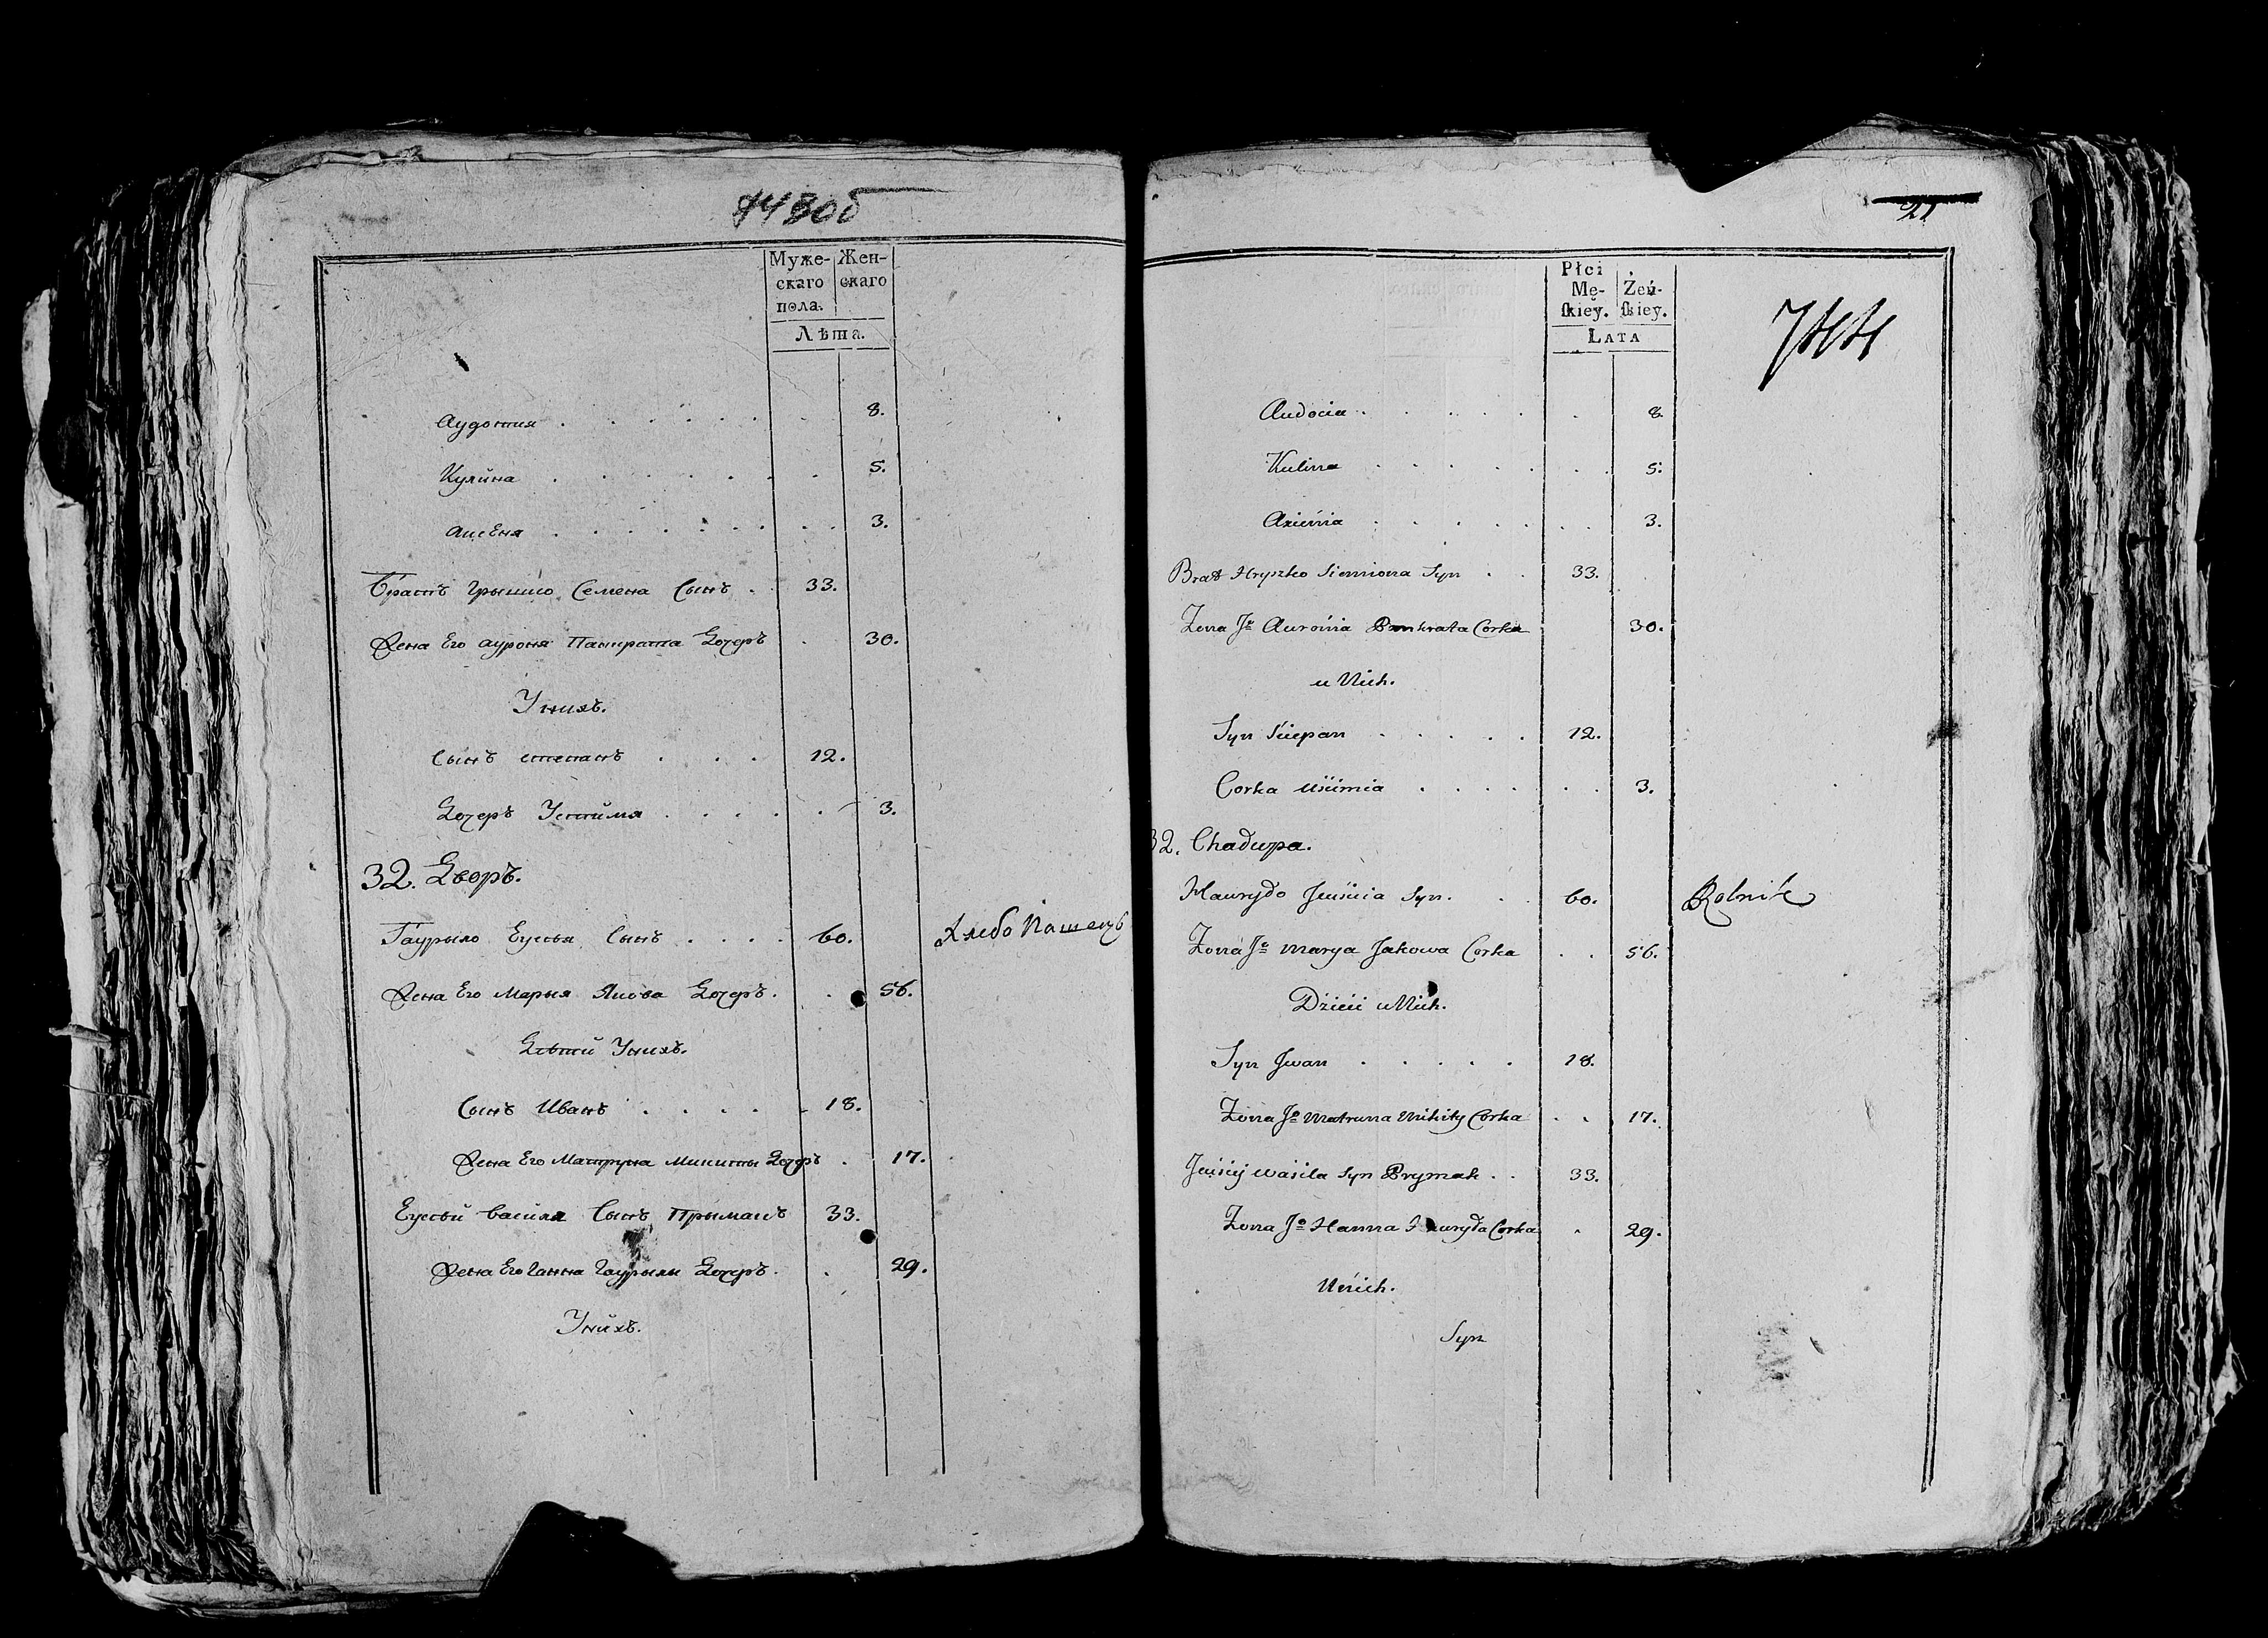 Муже-
скаго
пола.
Жен-
скаго
Лѣта.
Аудотия . . . . . . 8.
Кулина . . . . . . 5.
Аксеня . . . . . . 3.
Братъ Грышко Семена Сынъ . 33.
Жена Его Ауроня Панкрата Дочеръ . 30.
У нихъ.
Сынъ степанъ . . . 12.
Дочеръ Устимя . . . . . 3.
32. Дворъ.
Гаурыло Еусья Сынъ . . . . 60. Хлебо Пашецъ
Жена Его Марыя Якова Дочеръ . . 56.
Дѣти У нихъ.
Сынъ Иванъ . . . . . 18.
Жена Его Матруна Микиты Дочеръ . 17.
Еусѣй Василя Сынъ Прымакъ 33.
Жена Его Ганна Гаурылы Дочеръ . . 29.
У нихъ.
21
Płci
Mę-
skiey.
Żeń-
skiey.
LATA
744
Audocia . . . . . . 8
Kulina . . . . . . . 5.
Axienia . . . . . . . 3.
Brat Hryszko Siemiona Syn . . 33.
Zona Jo Auronia Pankrata Corka 30.
u Nich.
Syn Sciepan . . . . . 12.
Corka Uscimia . . . . . . 3.
32. Chałupa.
Hauryło Jeuscia Syn . . . 60. Rolnik
Zona Jo Marya Jakowa Corka . . 56.
Dzieci u Nich.
Syn Jwan . . . . . 18.
Zona Jo Matruna Mikity Corka . . 17.
Jeusiej Wasila Syn Prymak . . 33.
Zona Jo Hanna Hauryła Corka . 29.
U nich.
Syn